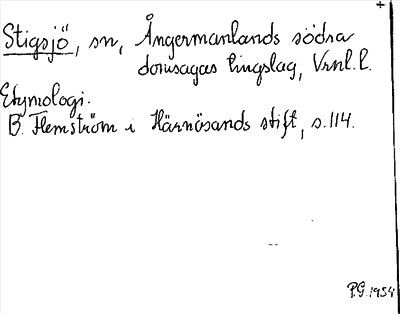 Stigsjö, sn, Ångermanlands södra
domsagas tingslag, Vrnl. l.
Etymologi.
B. Flemström i Härnösands stift, s. 114.
P.G. 1954